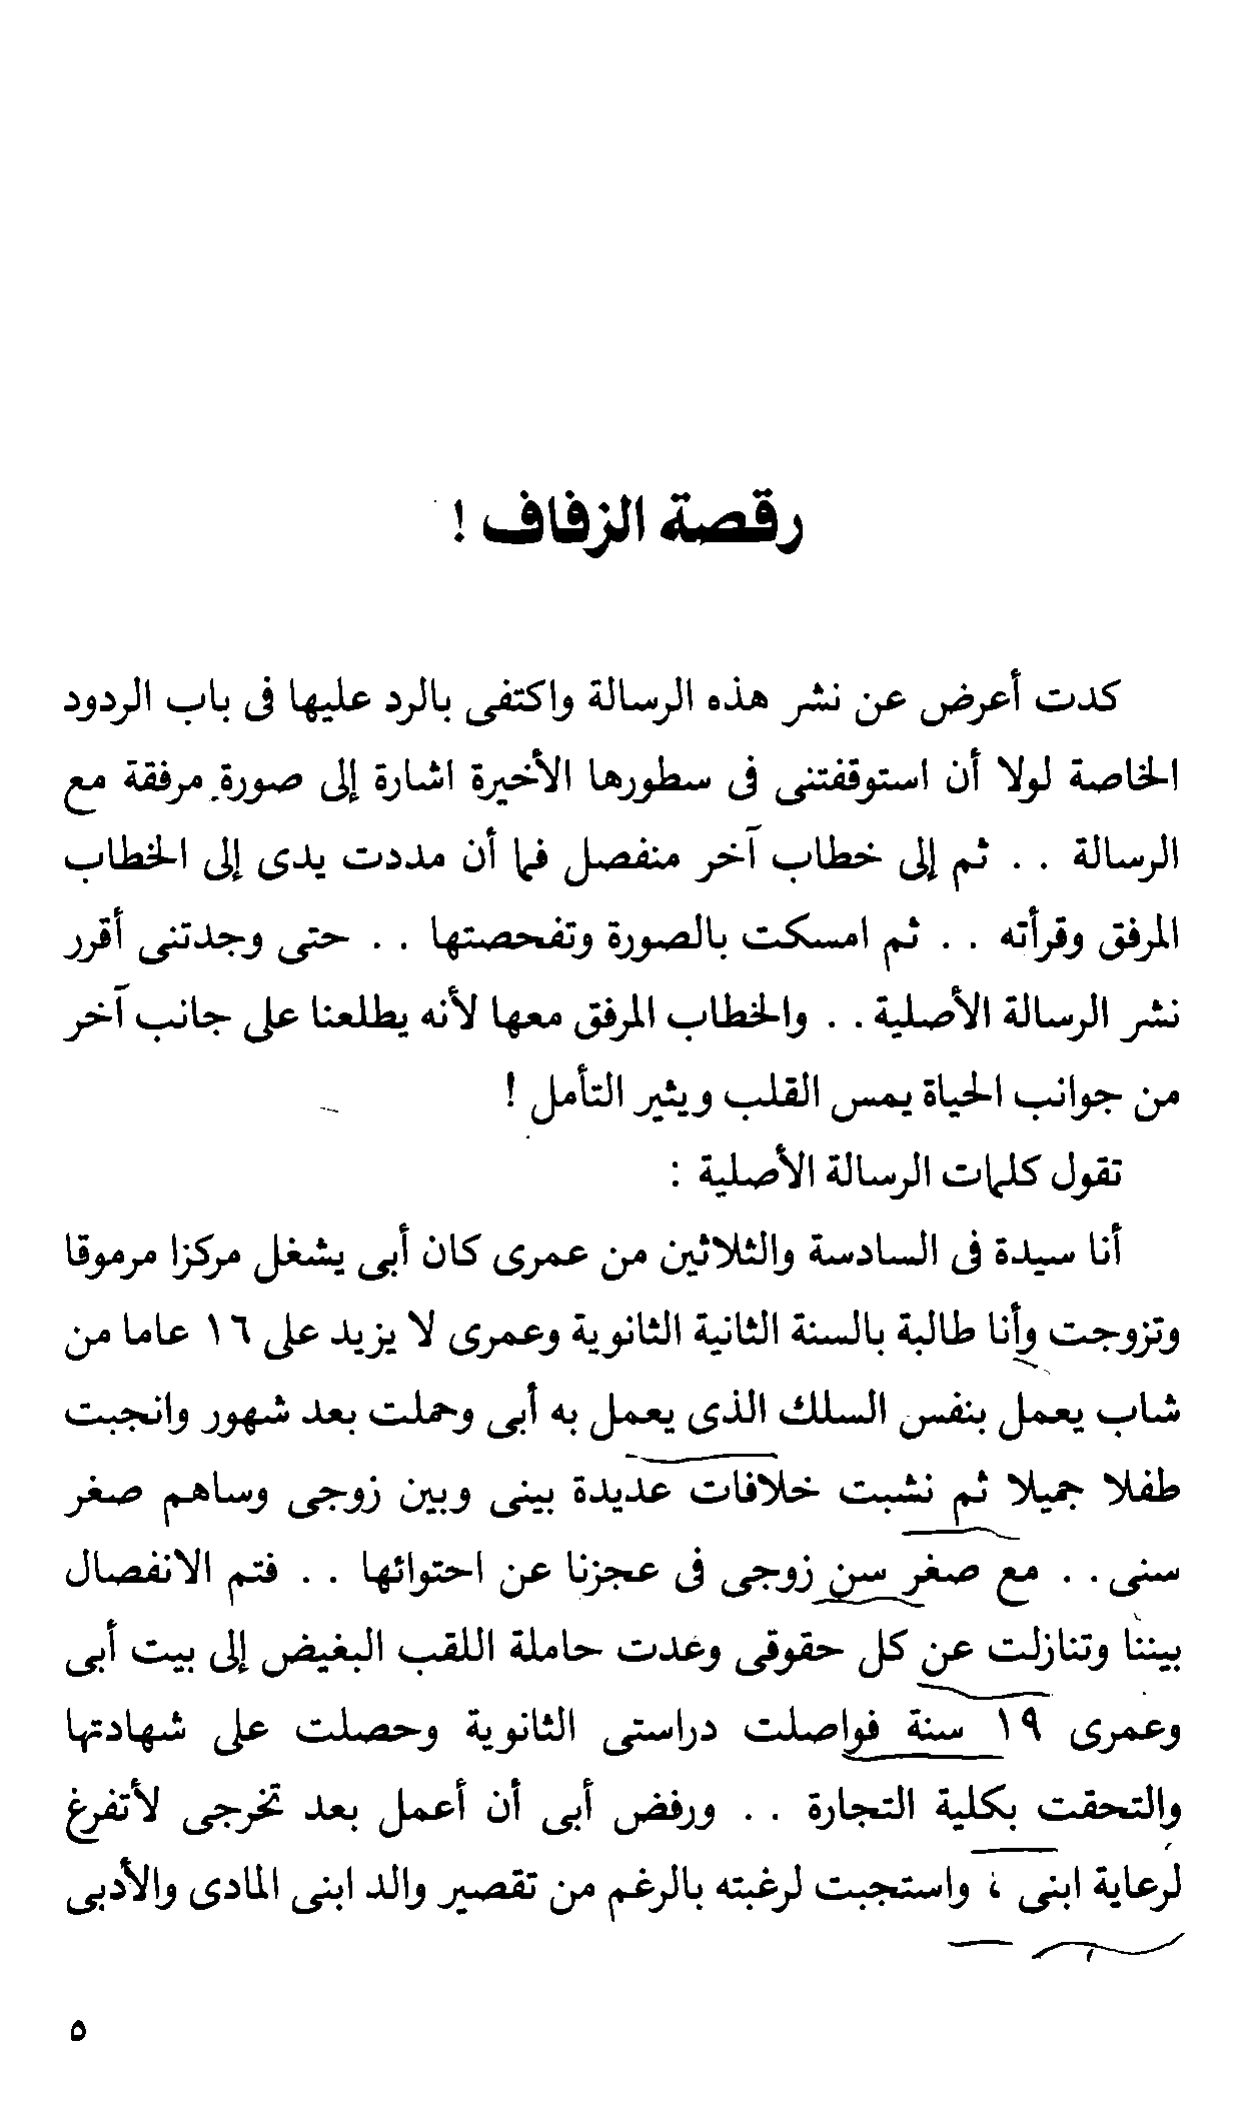 رقصة الزفاف !
كدت أعرض عن نشر هذه الرسالة واكتفى بالرد عليها فى باب الردود
الخاصة لولا أن استوقفتنى فى سطورها الأخيرة اشارة إلى صورة مرفقة مع
الرسالة . . ثم إلى خطاب آخر منفصل فما أن مددت يدى إلى الخطاب
المرفق وقرأته . . ثم امسكت بالصورة وتفحصتها . . حتى وجدتنى أقرر
نشر الرسالة الأصلية . . والخطاب المرفق معها لأنه يطلعنا على جانب آخر
من جوانب الحياة يمس القلب ويثير التأمل !
تقول كلمات الرسالة الأصلية :
أنا سيدة فى السادسة والثلاثين من عمرى كان أبى يشغل مركزا مرموقا
وتزوجت وأنا طالبة بالسنة الثانية الثانوية وعمرى لا يزيد على ١٦ عاما من
شاب يعمل بنفس السلك الذى يعمل به أبى وحملت بعد شهور وانجبت
طفلا جميلا ثم نشبت خلافات عديدة بينى وبين زوجى وساهم صغر
سنى . . مع صغر سن زوجى فى عجزنا عن احتوائها . . فتم الانفصال
بيننا وتنازلت عن كل حقوقى وعدت حاملة اللقب البغيض إلى بيت أبى
وعمرى ١٩ سنة فواصلت دراستى الثانوية وحصلت على شهادتها
والتحقت بكلية التجارة . . ورفض أبى أن أعمل بعد تخرجى لأتفرغ
لرعاية ابنى ، واستجبت لرغبته بالرغم من تقصير والد ابنى المادى والأدبى
٥